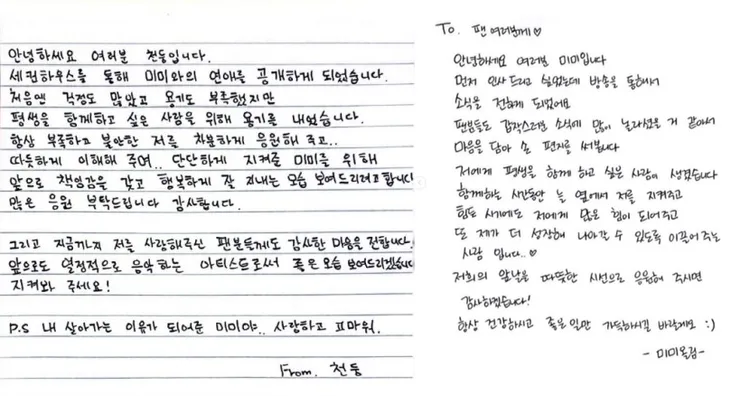 안녕하세요 여러분 천둥입니다.
세컨하우스를 통해 미미와의 연애를 공개하게 되었습니다.
처음엔 걱정도 많았고 용기도 부족했지만
평생을 함께하고 싶은 사람을 위해 용기를 내었습니다.
항상 부족하고 불안한 저를 차분하게 응원해 주고..
따뜻하게 이해해 주며.. 단단하게 지켜준 미미를 위해
앞으로 책임감을 갖고 행복하게 잘 지내는 모습 보여드리려고 합니다
많은 응원 부탁드립니다 감사합니다.
그리고 지금까지 저를 사랑해주신 팬분들께도 감사한 마음을 전합니다.
앞으로도 열정적으로 음악하는 아티스트로써 좋은 모습 보여드리겠습니다
지켜봐 주세요!
P.S 내 살아가는 이유가 되어준 미미야.. 사랑하고 고마워.
From. 천둥
To. 팬 여러분께♡
안녕하세요 여러분 미미입니다
먼저 인사드리고 싶었는데 방송을 통해서
소식을 전하게 되었어요
팬분들도 갑작스러운 소식에 많이 놀라셨을 거 같아서
마음을 담아 손 편지를 써봅니다
저에게 평생을 함께 하고 싶은 사람이 생겼습니다
함께하는 시간동안 늘 옆에서 저를 지켜주고
힘든 시기에도 저에게 많은 힘이 되어주고
또 제가 더 성장해 나아갈 수 있도록 이끌어주는
사람 입니다..♡
저희의 앞날을 따뜻한 시선으로 응원해 주시면
감사하겠습니다!
항상 건강하시고 좋은 일만 가득하시길 바랄게요 :)
- 미미올림 -